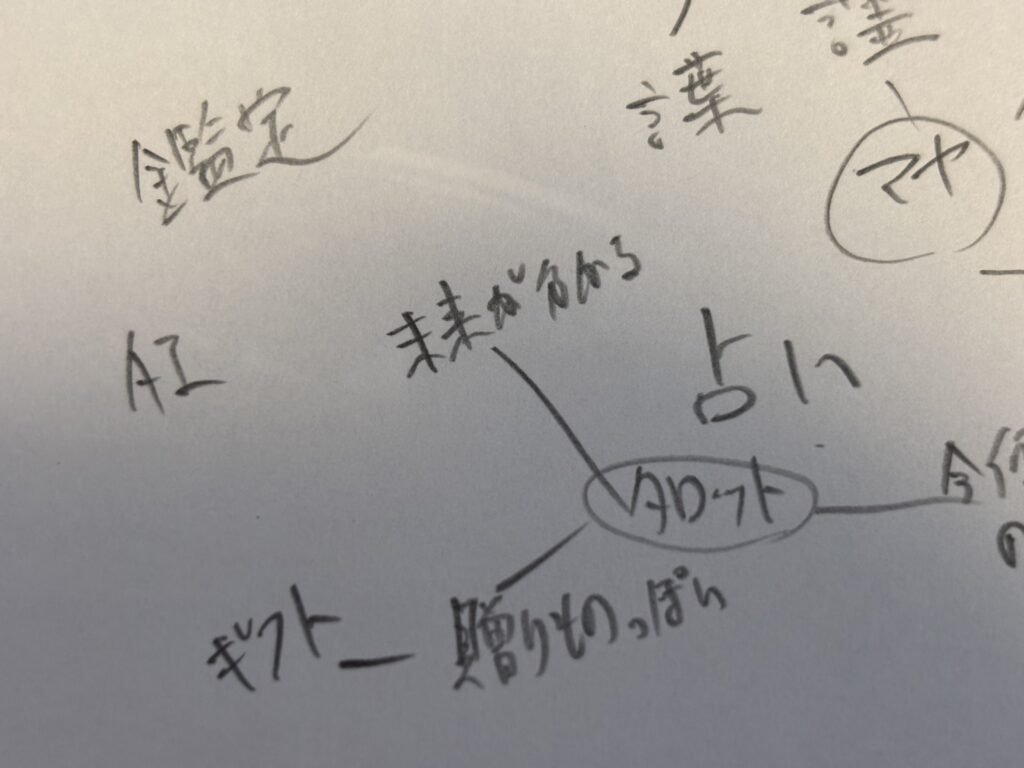 言葉
マヤ
鑑定
未来が分かる
AI
占い
タロット
今
の
ギフト
贈りものっぽい